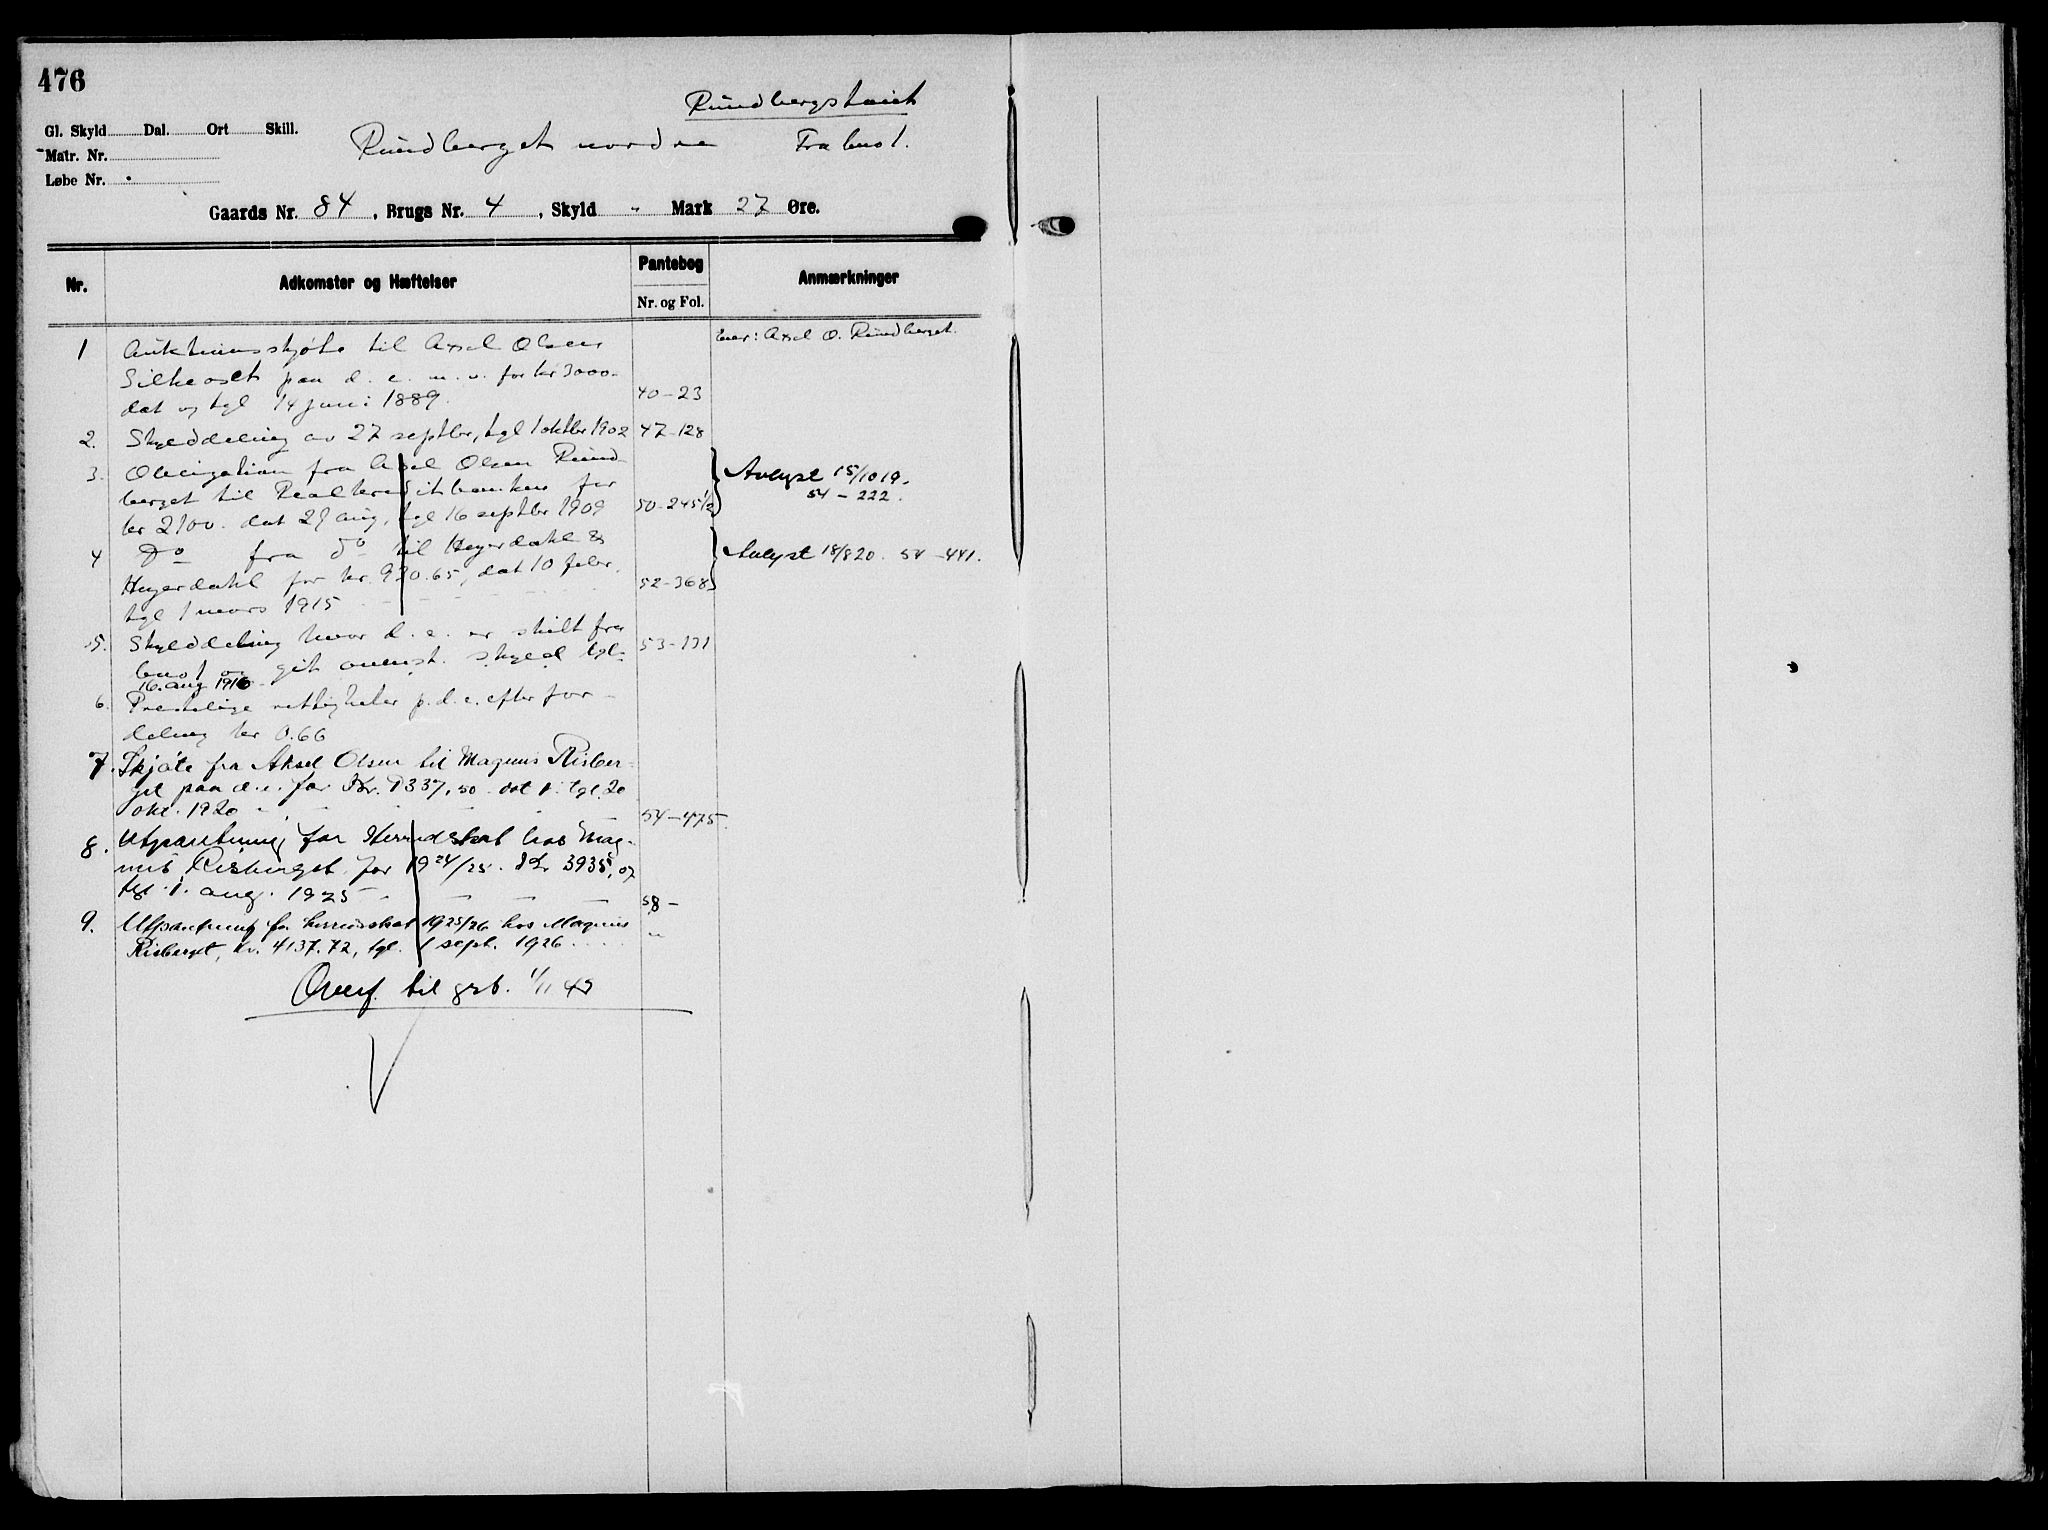 476
Rundbergsteich
Gl. Skyld Dal. Ort Skill.
Matr. Nr.
Rundberget nordre Fra bno 1.
Løbe Nr.
Gaards Nr. 84, Brugs Nr. 4, Skyld - Mark 27 Øre.
Nr. Adkomster og Hæftelser Pantebog Anmærkninger
Nr. og Fol.
1 Auktionsskjøte til Axel Olsen Eier: Axel O. Rundberget.
Silkeoset paa d. e. m. v. for kr 3000-
dat og tgl 14 juni 1889. 40-23
2. Skylddeling av 27 septbr, tgl 1 oktbr 1902 47-128
3. Obligation fra Axel Olsen Rund-
berget til Realkreditbanken for Avlyst 15/10 19.
kr 2100. dat 29 aug, tgl 16 septbr 1909 50-245 1/2 54-222.
4 Do fra do til Heyerdahl & Avlyst 18/8 20. 54-441.
Heyerdahl for kr. 920.65, dat 10 febr. 52-368
tgl 1 mars 1915
5. Skylddeling hvor d. e. er skilt fra 53-131
bno 1 og git ovenst. skyld tgl.
16. aug 1916
6. rettigheter p. d. e. efter for-
deling kr 0.66
7. Skjøte fra Aksel Olsen til Magnus Risber-
get paa d. e. for Kr. 1337,50 dat 1. tgl. 20
okt. 1920 54-475.
8. Utpantning for Herredskat hos Mag-
nus Risberget for 1924/25. Kr 3935,07
tgl. 1. aug. 1925 58-
9. Utpantning for herredskat 1925/26 hos Magnus "
Risberget, kr. 4137.72, tgl. 1 sept. 1926
Overf. til grb. 1/11 49